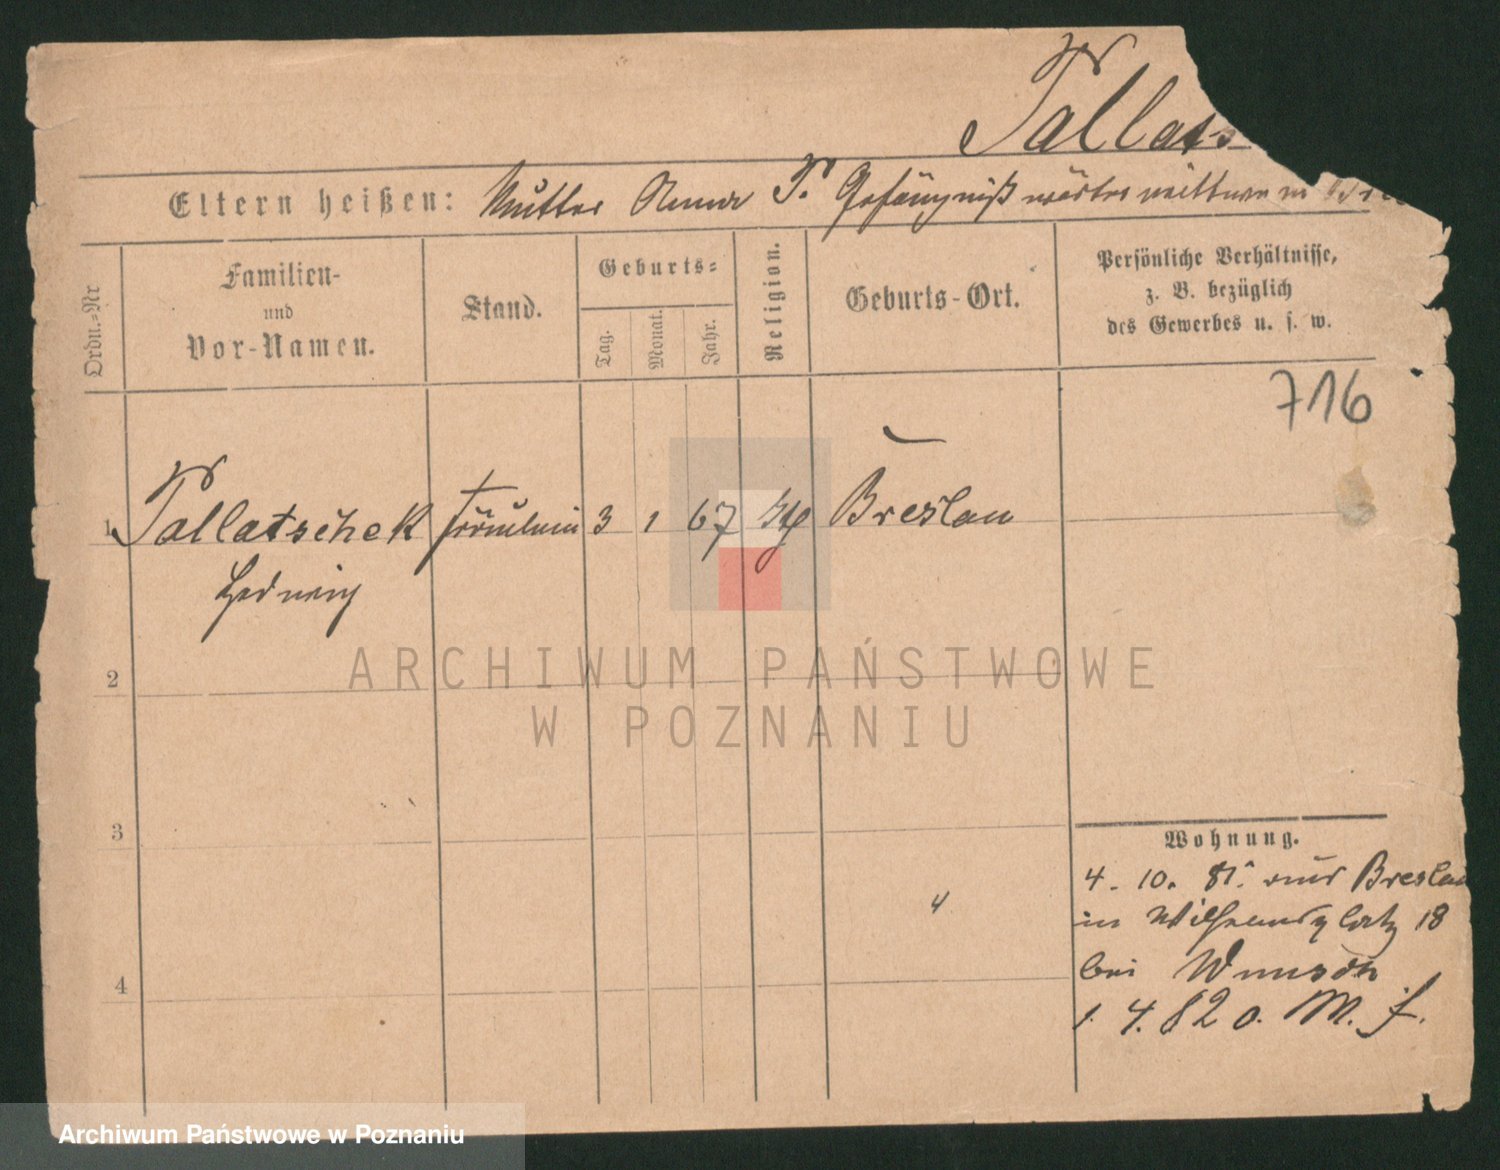 Tallats
Eltern heißen: Mutter Anna T. Gefängnißwärterwittwe in
Ordn.-Nr
Familien-
und
Vor-Namen.
Stand.
Geburts-
Tag.
Monat.
Jahr.
Religion.
Geburts-Ort.
Persönliche Verhältnisse,
z. B. bezüglich
des Gewerbes u. s. w.
716
1 Tallatschek Fräulein 3 1 67 kth Breslau
Hedwig
2
3
4
Wohnung.
4. 10. 81. aus Breslau
in Wilhelmsplatz 18
bei Wunsch
1. 4. 82 o. M. f.
4
ARCHIWUM PAŃSTWOWE
W POZNANIU
Archiwum Państwowe w Poznaniu